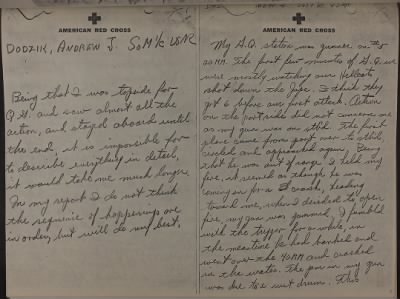 AMERICAN RED CROSS
DODZIK, ANDREW J. SoM'K USNR
Being that I was topside for
G.Q. and saw almost all the
action, and stayed aboard until
the end, it is impossible for
to describe everything in detail,
it would take me much longer.
In my report I do not think
the sequence of happenings are
in order, but will do my best.
AMERICAN RED CROSS
My G.Q. station was gunner on #5
20MM. The first few minutes of G.Q. we
were mostly watching our Hellcats
shot down the Japs. I think they
got 6 before our first attack. Action
on the port side did not concern me
as my gun was on stbd. The first
plane came from port over to stbd,
circled and approached again. Being
that he was out of range I held my
fire, it seemed as though he was
coming in for a crash, heading
toward me, when I decided to open
fire, my gun was jammed, I fumbled
with the trigger for a while, in
the meantime he had banked and
went over the 40MM and crashed
in the water. The jam in my gun
was due to drum. This